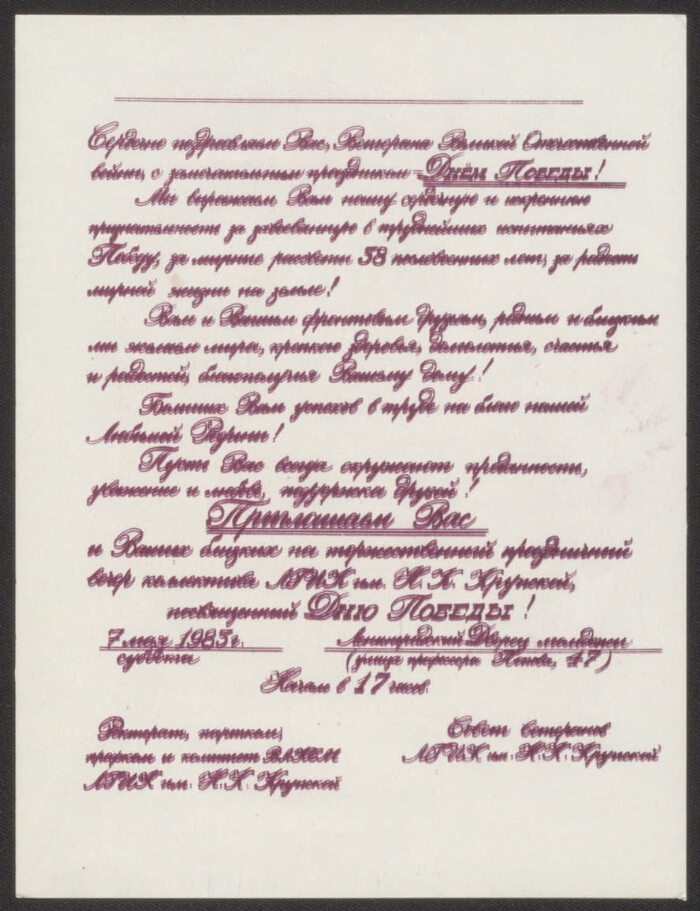 Сердечно поздравляем Вас, Ветерана Великой Отечественной
войны, с замечательным праздником – Днём Победы!
Мы выражаем Вам нашу сердечную и искреннюю
признательность за завоеванную в труднейших испытаниях
Победу, за мирные рассветы 38 послевоенных лет, за радость
мирной жизни на земле!
Вам и Вашим фронтовым друзьям, родным и близким
мы желаем мира, крепкого здоровья, долголетия, счастья
и радостей, благополучия Вашему дому!
Больших Вам успехов в труде на благо нашей
Любимой Родины!
Пусть Вас всегда окружают преданность,
уважение и любовь, поддержка друзей!
Приглашаем Вас
и Ваших близких на торжественный праздничный
вечер коллектива ЛГИК им. Н. К. Крупской,
посвященный Дню Победы!
7 мая 1983 г. Ленинградский Дворец молодежи
суббота (улица профессора Попова, 47)
Начало в 17 часов.
Ректорат, партком, Совет ветеранов
профком и комитет ВЛКСМ ЛГИК им. Н. К. Крупской
ЛГИК им. Н. К. Крупской